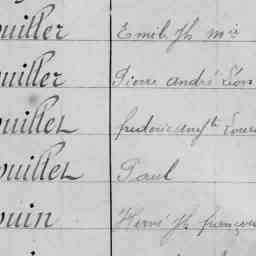 ouiller Emile Jh Mie
ouiller Pierre André Léon
ouillet frédéric augte Louis
ouillet Paul
ouin Hervé Jh françois